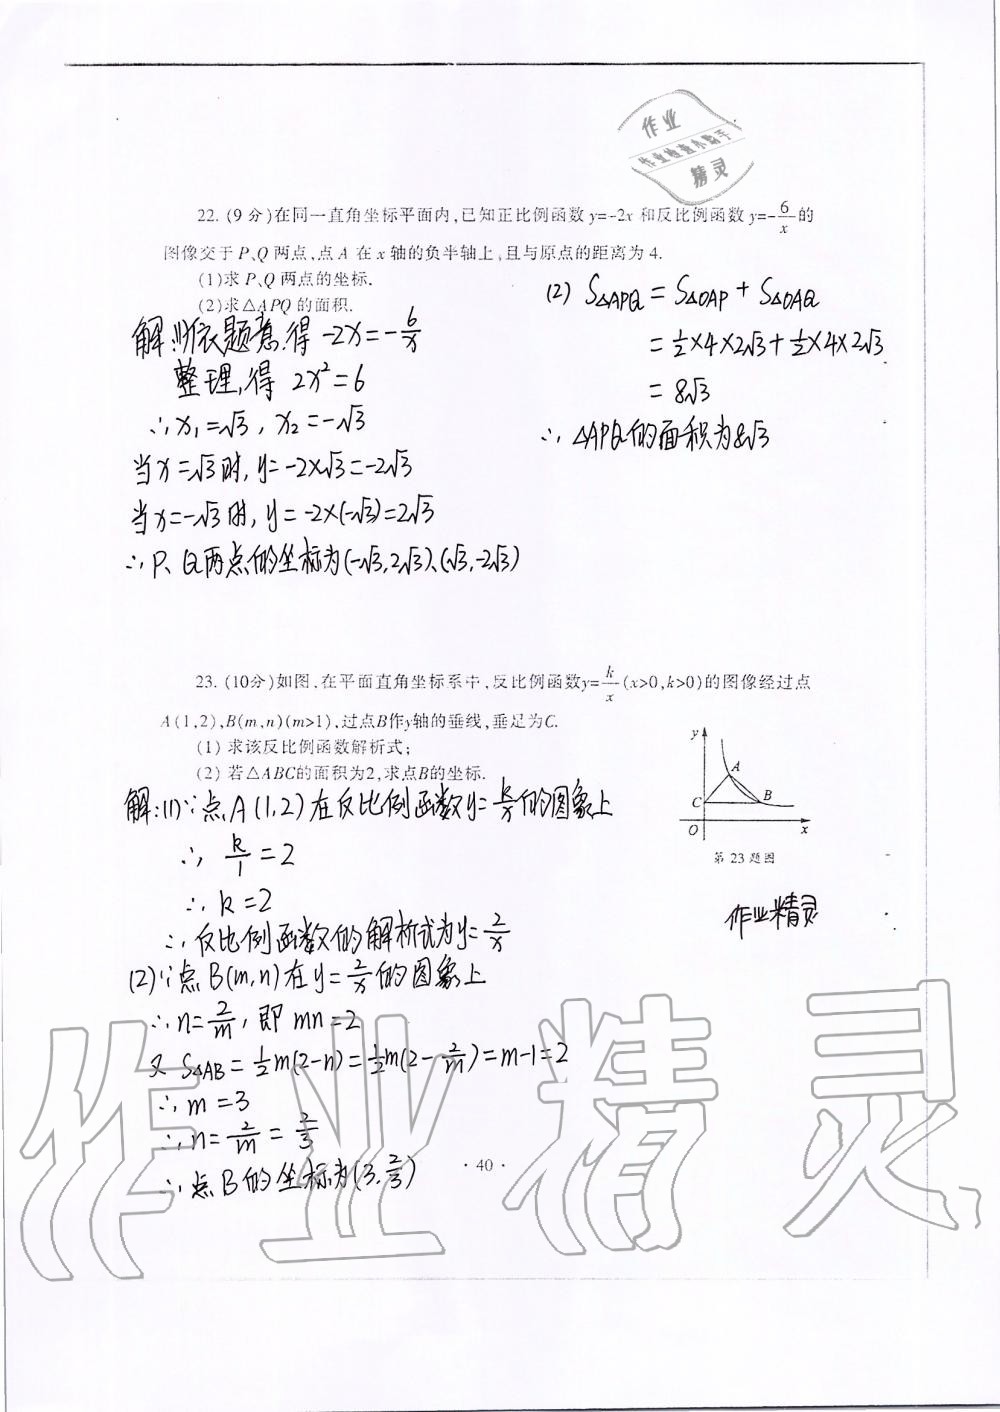 作业
作业检查小助手
精灵
22. (9 分)在同一直角坐标平面内,已知正比例函数 y=-2x 和反比例函数 y=-6/x 的
图像交于 P、Q 两点,点 A 在 x 轴的负半轴上,且与原点的距离为 4.
(1)求 P、Q 两点的坐标.
(2)求△APQ 的面积.
解:(1)依题意,得 -2x=-6/x
整理,得 2x²=6
∴x₁=√3, x₂=-√3
当x=√3时, y=-2×√3=-2√3
当x=-√3时, y=-2×(-√3)=2√3
∴P、Q两点的坐标为(-√3,2√3)、(√3,-2√3)
(2) S△APQ = S△OAP + S△OAQ
= ½×4×2√3+½×4×2√3
= 8√3
∴ △APQ的面积为8√3
23. (10分)如图,在平面直角坐标系中,反比例函数y=k/x(x>0,k>0)的图像经过点
A(1,2),B(m,n)(m>1),过点B作y轴的垂线,垂足为C.
(1) 求该反比例函数解析式;
(2) 若△ABC的面积为2,求点B的坐标.
y
A
C
B
O
x
第 23 题图
解:(1)∵点A(1,2)在反比例函数y=k/x的图象上
∴ k/1=2
∴ k=2
∴反比例函数的解析式为y=2/x
(2)∵点B(m,n)在y=2/x的图象上
∴n=2/m, 即 mn=2
又 S△AB=½m(2-n)=½m(2-2/m)=m-1=2
∴m=3
∴n=2/m=2/3
∴点B的坐标为(3,2/3)
作业精灵
· 40 ·
作业精灵